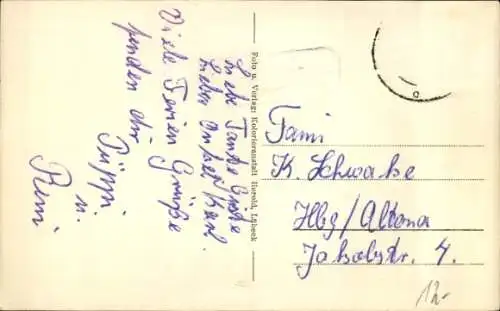 Liebe Tante Grete
Lieber Onkel Karl.
Viele Ferien Grüße
senden dir
Püppi
u.
Remi
Foto u. Verlag: Kolorieranstalt Herold, Lübeck
Fami
K. Schwabe
Hbg/Altona
Jakobstr. 4.
12.-